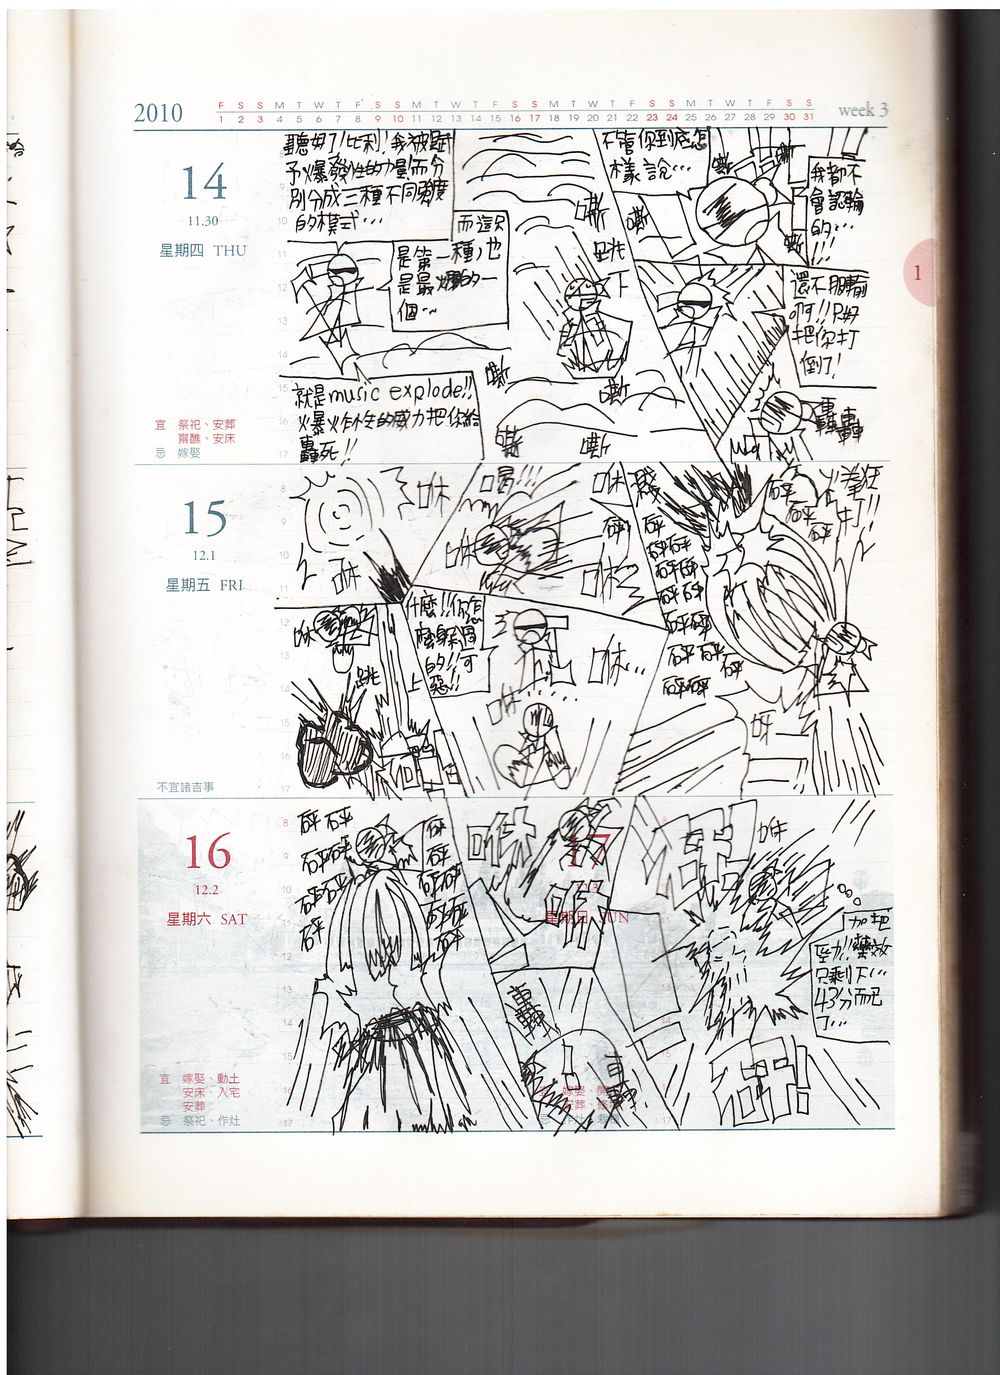 2010
F S S M T W T F S S M T W T F S S M T W T F S S M T W T F S S
1 2 3 4 5 6 7 8 9 10 11 12 13 14 15 16 17 18 19 20 21 22 23 24 25 26 27 28 29 30 31
week 3
1
14
11.30
星期四 THU
宜 祭祀、安葬
齋醮、安床
忌 嫁娶
聽好了!比利!我被賦
予爆發性的力量而分
別分成三種不同強度
的模式…
而這只
是第一種,也
是最爛的一
個…
就是music explode!!
爆炸性的威力把你給
轟死!!
嘶
嘶
跳
下
嘶
嘶
嘶
嘶
不管你到底怎
樣說…
嘶
嘶
嘶
我都不
會認輸
的…
!!!
還不認輸
啊!!只好
把你打
倒了!
轟轟
15
12.1
星期五 FRI
不宜諸吉事
咻
咻
喝!!!
咻
咻
咻
咻
跳
上
什麼!!你怎
麼躲過
的!!可
惡!!
咻…
咻
火拳狂
打!!
砰
砰
砰
砰
砰砰
砰砰
砰砰
砰砰
砰砰
砰
砰砰
呀
16
12.2
星期六 SAT
宜 嫁娶、動土
安床、入宅
安葬
忌 祭祀、作灶
砰砰
砰砰
砰砰
砰
砰
砰
砰砰
砰砰
砰
17
星期日 SUN
咻
咻
轟
轟
轟
轟
咻
砰!
加把
勁!!藥效
只剩下…
43分而已
了…